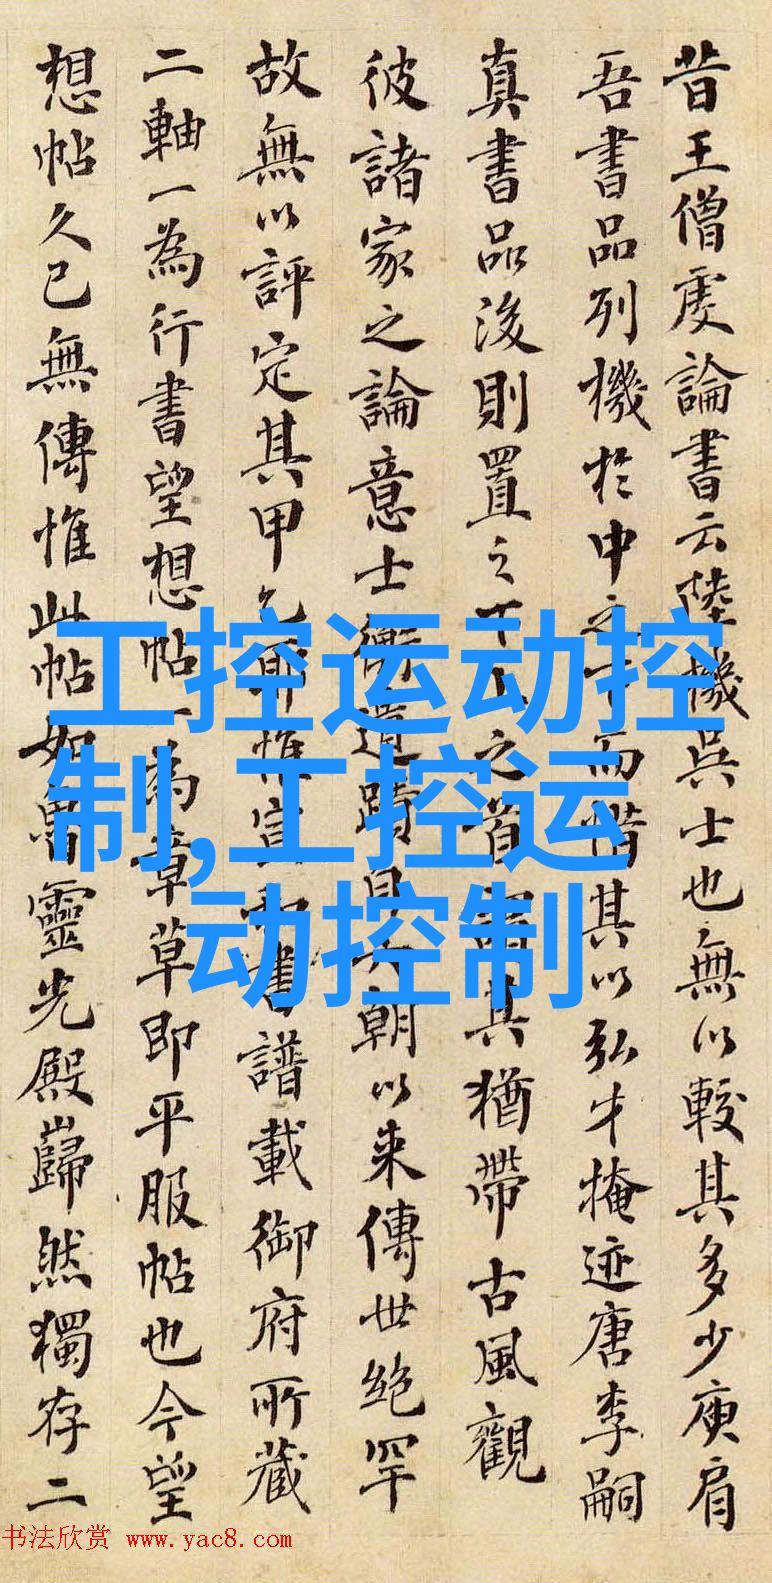 昔王僧虔論書云陸機吳士也無以較其多少庾肩
吾書品列機於中之下而惜其以弘才掩迹唐李嗣
真書品後則置之下上之首謂其猶帶古風觀
彼諸家之論意士衡遺蹟自六朝以来傳世絶罕
故無以評定其甲乙耶惟宣和書譜載御府所藏
二軸一為行書望想帖一為章草即平服帖也今望
想帖久已無傳惟此帖如魯靈光殿巋然獨存二
工控运动控
制,工控运
动控制
书法欣赏 www.yac8.com